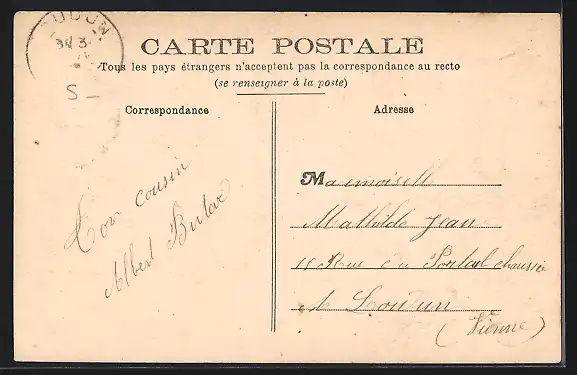 CARTE POSTALE
Tous les pays étrangers n'acceptent pas la correspondance au recto
(se renseigner à la poste)
Correspondance
Adresse
cousin
Albert
Ma emoisell
Mathilde Jean
Rue du Portail chaussée
à Loudun
(Vienne)